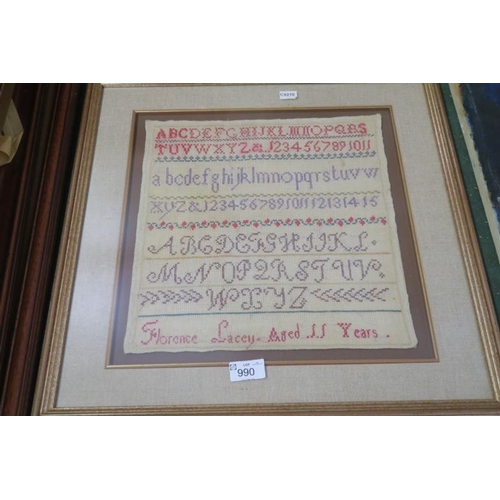 ABCDEFGHIJKLMNOPQRS
TUVWXYZ&1234567891011
abcdefghijklmnopqrstuvw
xyz&123456789101112131415
ABCDEFGHIJKL.
MNOPQRSTUV.
WXYZ
Florence Lacey. Aged 11 Years.
990